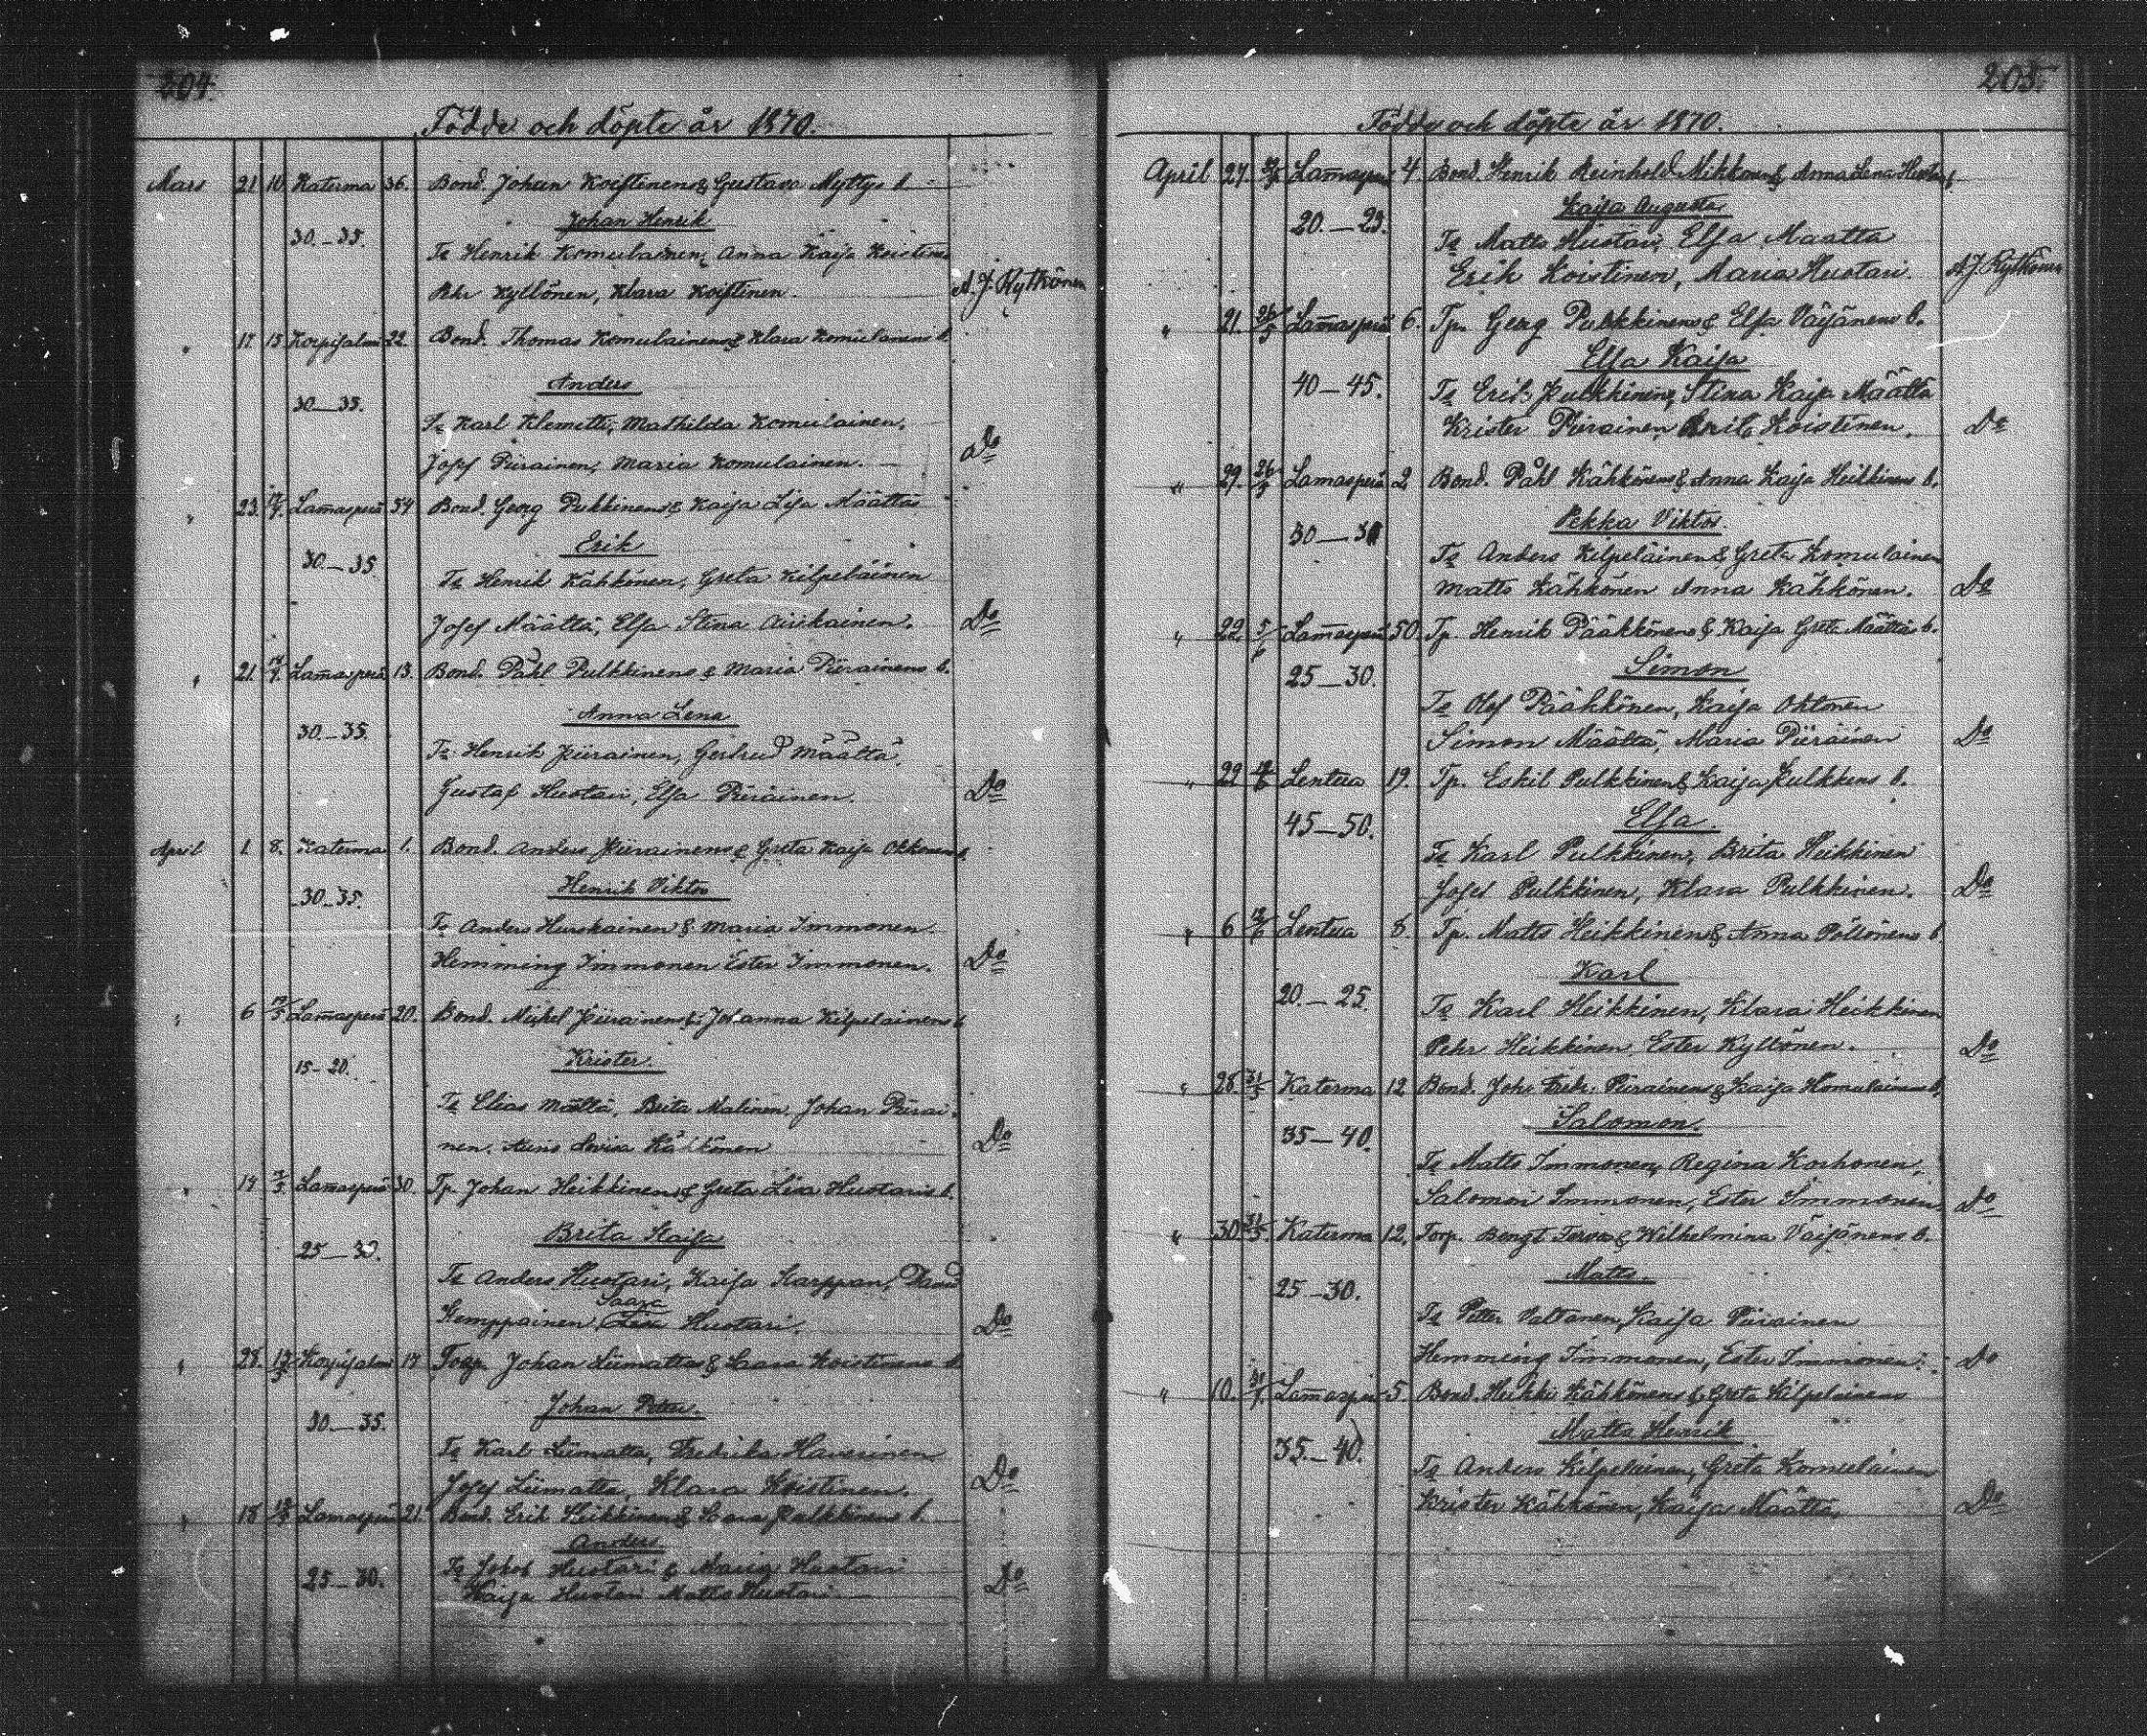 204.
Födde och döpte år 1870.
Mars 21 10 Katerma 36. Bond. Johan Koistinens & Gustava Myttys b
Johan Henrik
30.–35.
Ts Henrik Komulainen, Anna Kaisa Koistinen
Pehr Kyllönen, Klara Koistinen.
A. J. Rytkönen
" 17 15 Korpisalmi 22. Bond. Thomas Komulainens & Klara Komulainens b.
Anders
30–35.
Ts Karl Klemetti, Mathilda Komulainen,
Josef Piirainen, Maria Komulainen.
Do
" 23. 17/4. Lam̄asperä 54 Bond. Georg Pukkinens & Kaisa Lisa Määttäs
Erik
30.–35
Ts Henrik Kähkönen, Greta Kilpeläinen
Josef Määttä, Elsa Stina Airikainen.
Do
" 21. 17/4. Lam̄asperä 13. Bond. Påhl Pulkkinens & Maria Piirainens b.
Anna Lena
30.–35.
Ts Henrik Piirainen, Gertrud Määttä,
Gustaf Huotari, Elsa Piirainen.
Do
April 1 8. Katerma 1. Bond. Anders Piirainens & Greta Kaisa Okkonens b.
Henrik Viktor
30–35.
Ts Anders Hurskainen & Maria Immonen
Hemming Immonen Ester Immonen.
Do
" 6 Lam̄asperä 20. Bond. Mickel Piirainens & Johanna Kilpelainens b
Krister.
15–20.
Ts Elias Määttä, Brita Malinen, Johan Pirai-
nen. Lovisa Kähkönen
Do
" 14 Lam̄asperä 30. Tp. Johan Heikkinens & Greta Lisa Huotaris b.
Brita Kaisa
25–30.
Ts Anders Huotari, Kaisa Karppan,
Saara
Kemppainen Lisa Huotari.
Do
" 28. Korpisalmi 17 Torp. Johan Liimattas & Saara Koistinens b.
Johan Petter.
30–35.
Ts Karl Liimatta, Fredrika Haverinen
Josef Liimatta, Klara Koistinen.
Do
" 18 Lamasperä 21. Bond. Erik Heikkinens & Sara Pulkkinens b.
Anders
25–30.
Ts Jakob Huotari & Maria Huotari
Kaisa Huotari Matts Huotari
Do
205.
Födde och döpte år 1870.
April 27. Lam̄asperä 4 Bond. Henrik Reinhold Mikkonens & Anna Lena Huotaris b.
Kaisa Augusta
20.–25.
Ts Matts Huotari, Elsa Maatta
Erik Koistinen, Maria Huotari.
A. J. Rytkönen
" 21. 26/5 Lam̄asperä 6. Tp. Georg Pulkkinens & Elsa Väisänens b.
Elsa Kaisa
40–45.
Ts Erik Pulkkinen, Stina Kaisa Määttä
Krister Piirainen, Brita Koistinen.
Do
" 29. 26/5 Lamasperä 2 Bond. Påhl Kähkönens & Anna Kaisa Heikkinens b.
Pekka Viktor.
30–
Ts Anders Kilpeläinen & Greta Komulainen
Matts Kähkönen Anna Kähkönen.
Do
" 22. 5/6 Lam̄asperä 50. Tp. Henrik Pääkkönens & Kaisa Greta Määttäs b.
Simon
25–30.
Ts Olof Pääkkönen, Kaisa Oktonen
Simon Määttä, Maria Piirainen
Do
" 29 Lentua 19. Tp. Eskil Pulkkinens & Kaisa Kulkkens b.
Elsa.
45–50.
Ts Karl Pulkkinen, Brita Heikkinen
Josef Pulkkinen, Klara Pulkkinen.
Do
" 6 Lentua 8. Tp. Matts Heikkinens & Anna Pöllönens b.
Karl
20.–25
Ts Karl Heikkinen, Klara Heikkinen
Pehr Heikkinen Ester Kyllönen.
Do
" 28. 31/5 Katerma 12 Bond. Joh. Fredr. Piirainens & Kaisa Komulainens b.
Salomon.
35–40.
Ts Matts Immonen, Regina Korhonen,
Salomon Immonen, Ester Immonen.
Do
" 30. 31/5. Katerma 12. Torp. Bengt Tervos & Wilhelmina Väisänens b.
Matts.
25–30.
Ts Petter Valtanen, Kaisa Piirainen
Hemming Immonen, Ester Immonen.
Do
" 10. Lam̄asperä 5. Bond. Heikki Kähkönens & Greta Kilpelainens
Matts Henrik
35.–40.
Ts Anders Kilpelainen, Greta Komulainen
Krister Kähkönen, Kaisa Määttä.
Do